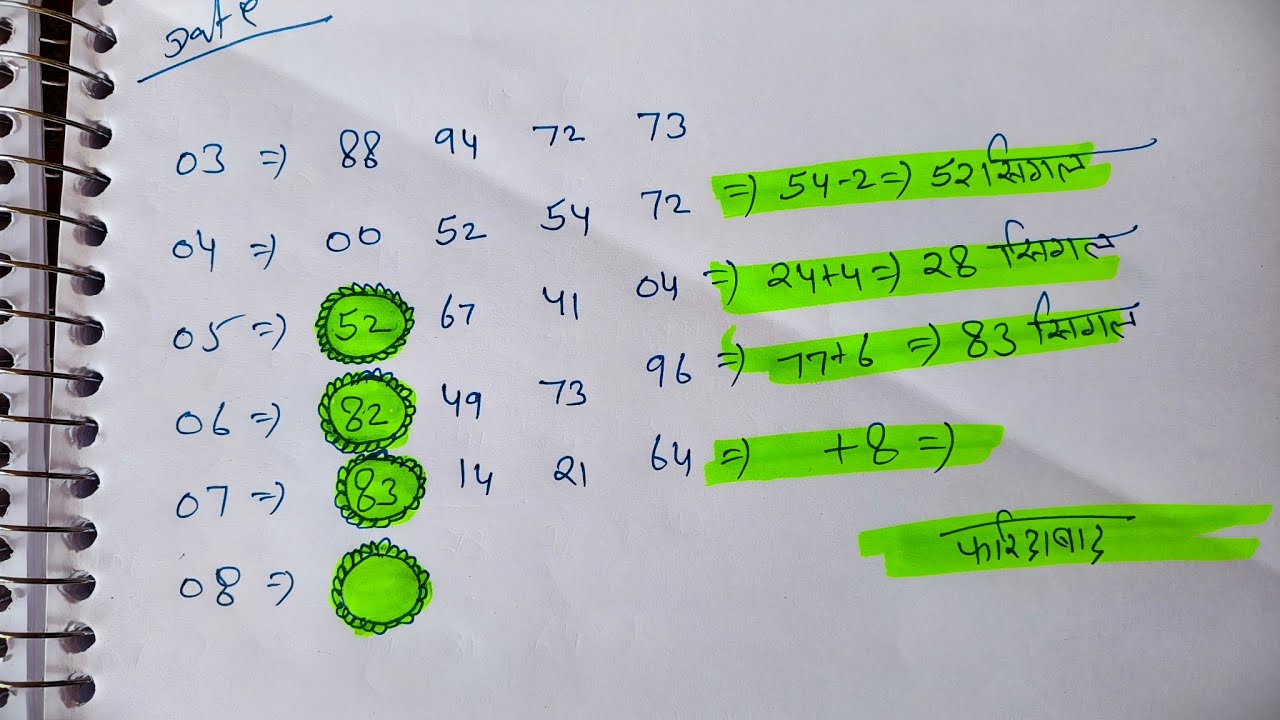 Date
03 => 88 94 72 73
04 => 00 52 54 72 => 54-2 => 52 सिगल
05 => 52 67 41 04 => 24+4 => 28 सिगल
06 => 82 49 73 96 => 77+6 => 83 सिगल
07 => 83 14 21 64 => +8 =>
08 =>
फरिदाबाद